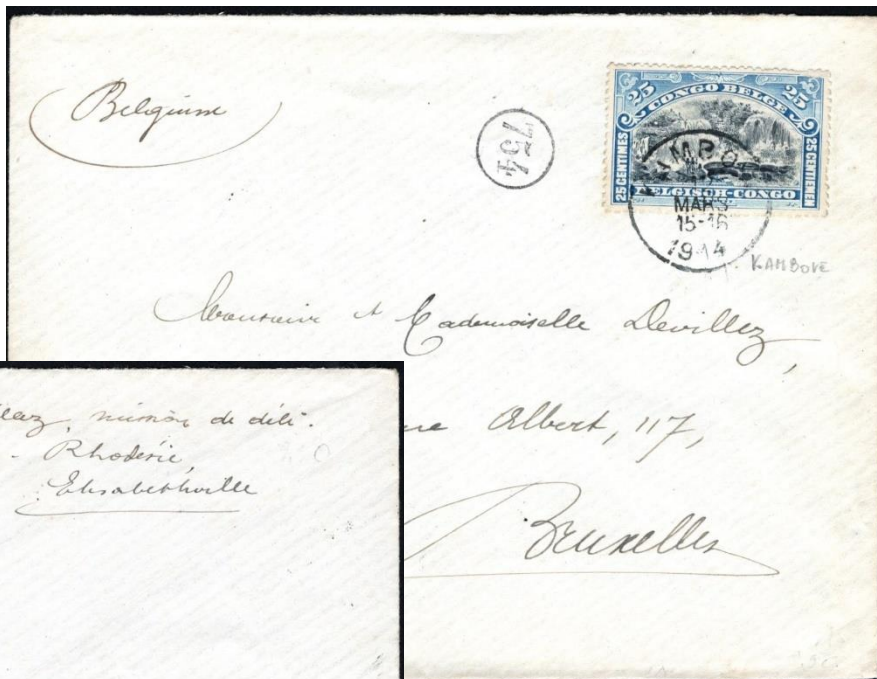 Belgique
754
25 CONGO BELGE 25
25 CENTIMES
25 CENTIEMEN
BELGISCH-CONGO
MARS
15-16
1914
KAMBOVE
Monsieur et Mademoiselle Devillez,
Albert, 117,
Bruxelles
de déli-
- Rhodésie,
Elisabethville